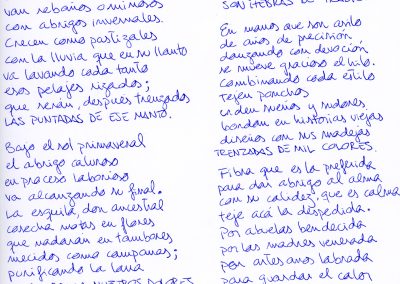 van rebaños ominosos
con abrigos invernales.
Crecen como pastizales
con la lluvia que en su llanto
va lavando cada tanto
esos pelajes rizados;
que serán, después trenzados
LAS PUNTADAS DE ESE MANTO.
Bajo el sol primaveral
el abrigo caluroso
en proceso laborioso
va alcanzando su final.
La esquila, don ancestral
cosecha motas en flores
que nadarán en tambores
mecidos como campanas;
purificando la lana
NUESTROS DOLORES
SON HEBRAS DE
En manos que son canto
de años de precisión,
danzando con devoción
se mueve gracioso el hilo.
Combinando cada estilo
tejen ponchos
urden sueños y sudores
bordan en historias viejas
diseños con sus madejas
TRENZADAS DE MIL COLORES.
Fibra que es la preferida
para dar abrigo al alma
con su calidez, que es calma
teje acá la despedida.
Por abuelas bendecida
por las madres venerada
por artesanos labrada
para guardar el calor